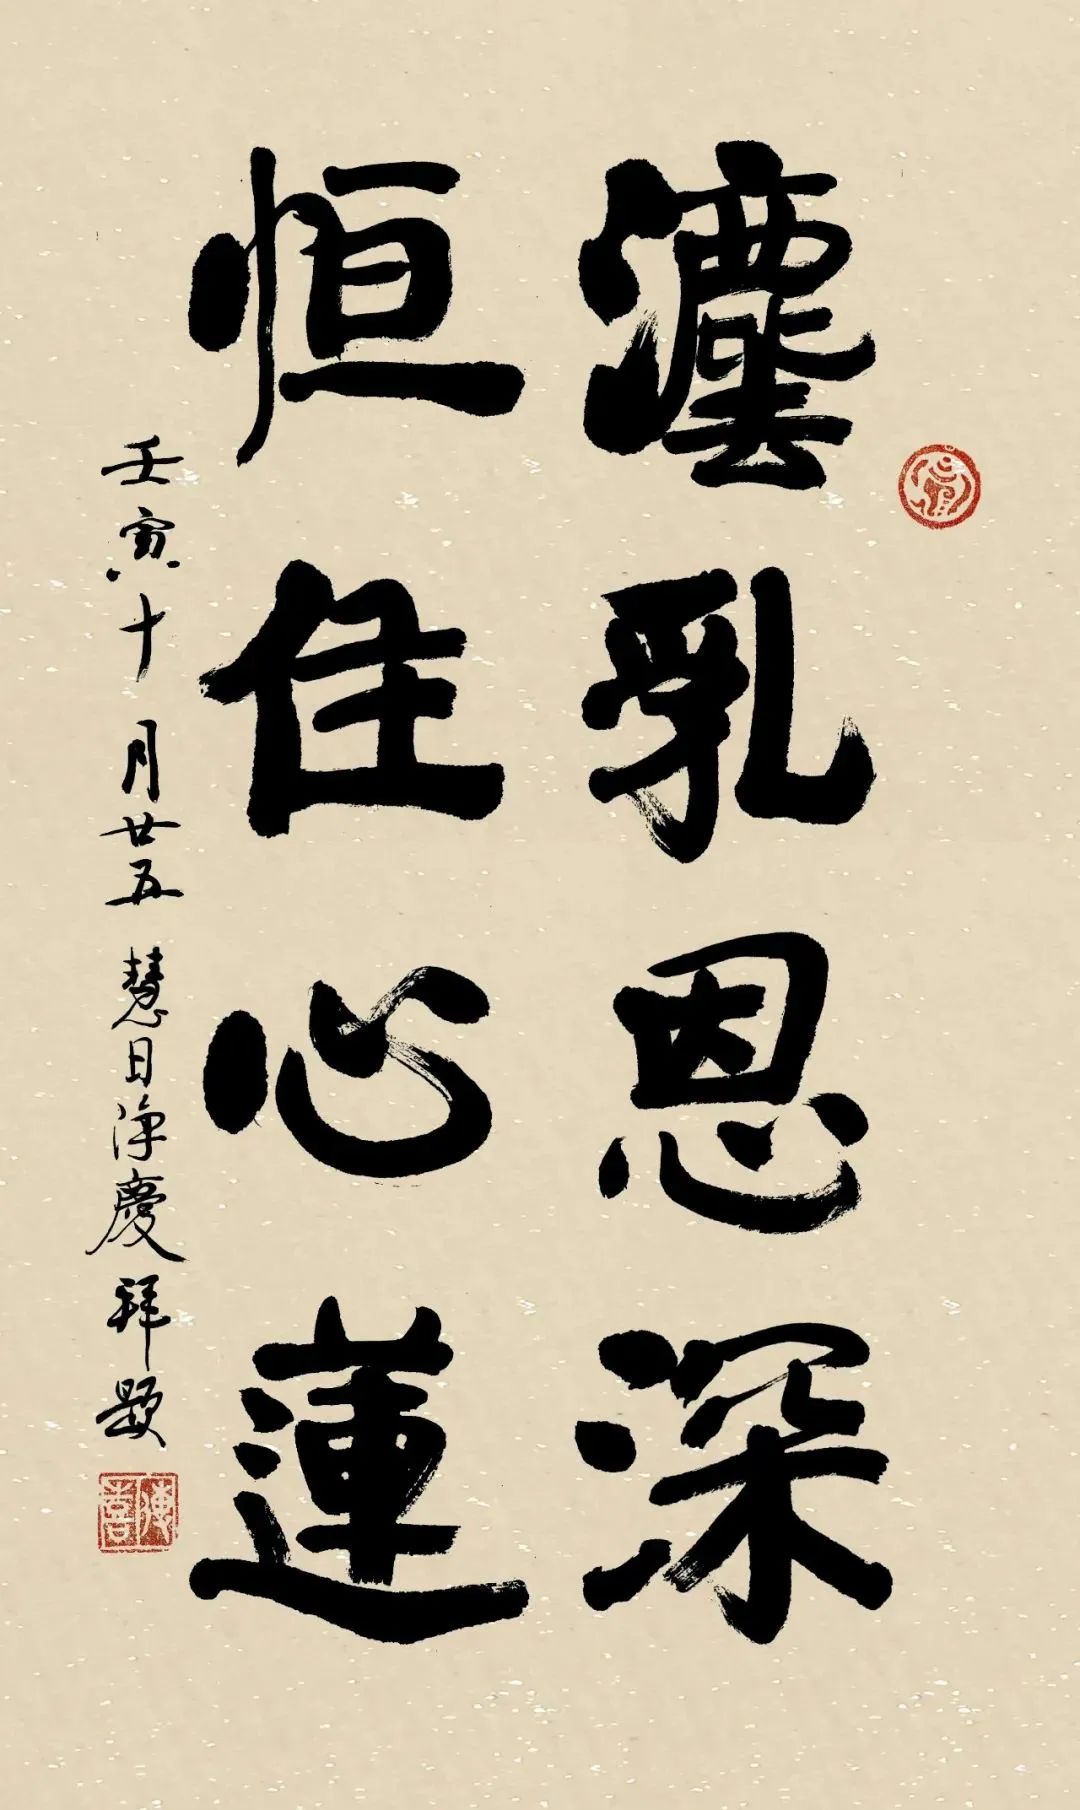 灋乳恩深
恒住心蓮
壬寅十月廿五 慧日淨慶拜題
傳喜